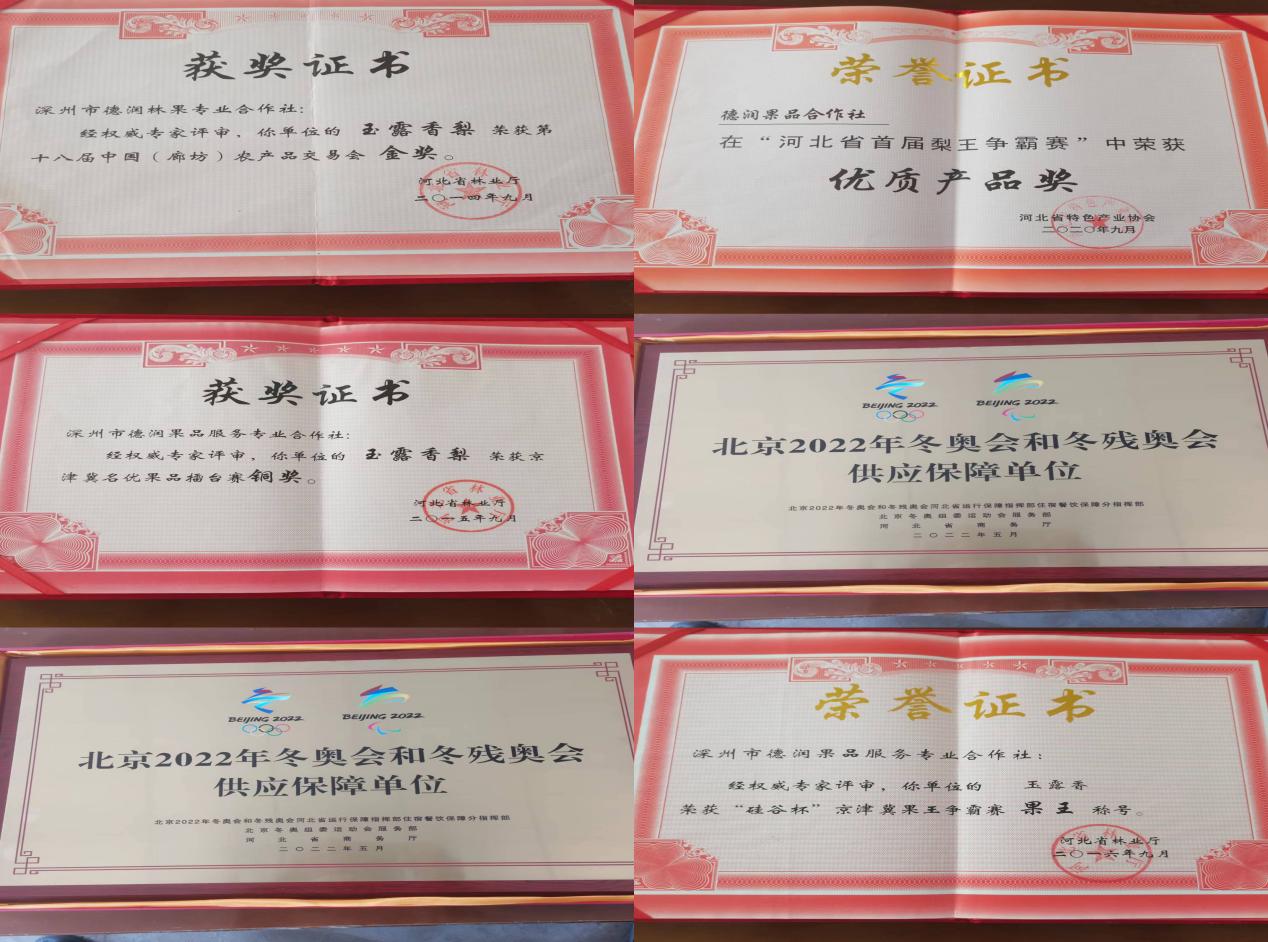 获奖证书
深州市德润林果专业合作社:
经权威专家评审，你单位的 玉露香梨 荣获第
十八届中国（廊坊）农产品交易会 金奖。
河北省林业厅
二〇一四年九月
荣誉证书
德润果品合作社
在“河北省首届梨王争霸赛”中荣获
优质产品奖
河北省特色产业协会
二〇二〇年九月
获奖证书
深州市德润果品服务专业合作社:
经权威专家评审，你单位的 玉露香梨 荣获京
津冀名优果品擂台赛铜奖。
河北省林业厅
二〇一五年九月
BEIJING 2022 BEIJING 2022
北京2022年冬奥会和冬残奥会
供应保障单位
北京2022年冬奥会和冬残奥会河北省运行保障指挥部住宿餐饮保障分指挥部
北京冬奥组委运动会服务部
河北省商务厅
二〇二二年五月
BEIJING 2022 BEIJING 2022
北京2022年冬奥会和冬残奥会
供应保障单位
北京2022年冬奥会和冬残奥会河北省运行保障指挥部住宿餐饮保障分指挥部
北京冬奥组委运动会服务部
河北省商务厅
二〇二二年五月
荣誉证书
深州市德润果品服务专业合作社:
经权威专家评审，你单位的 玉露香
荣获“硅谷杯”京津冀果王争霸赛 果王 称号。
河北省林业厅
二〇一六年九月